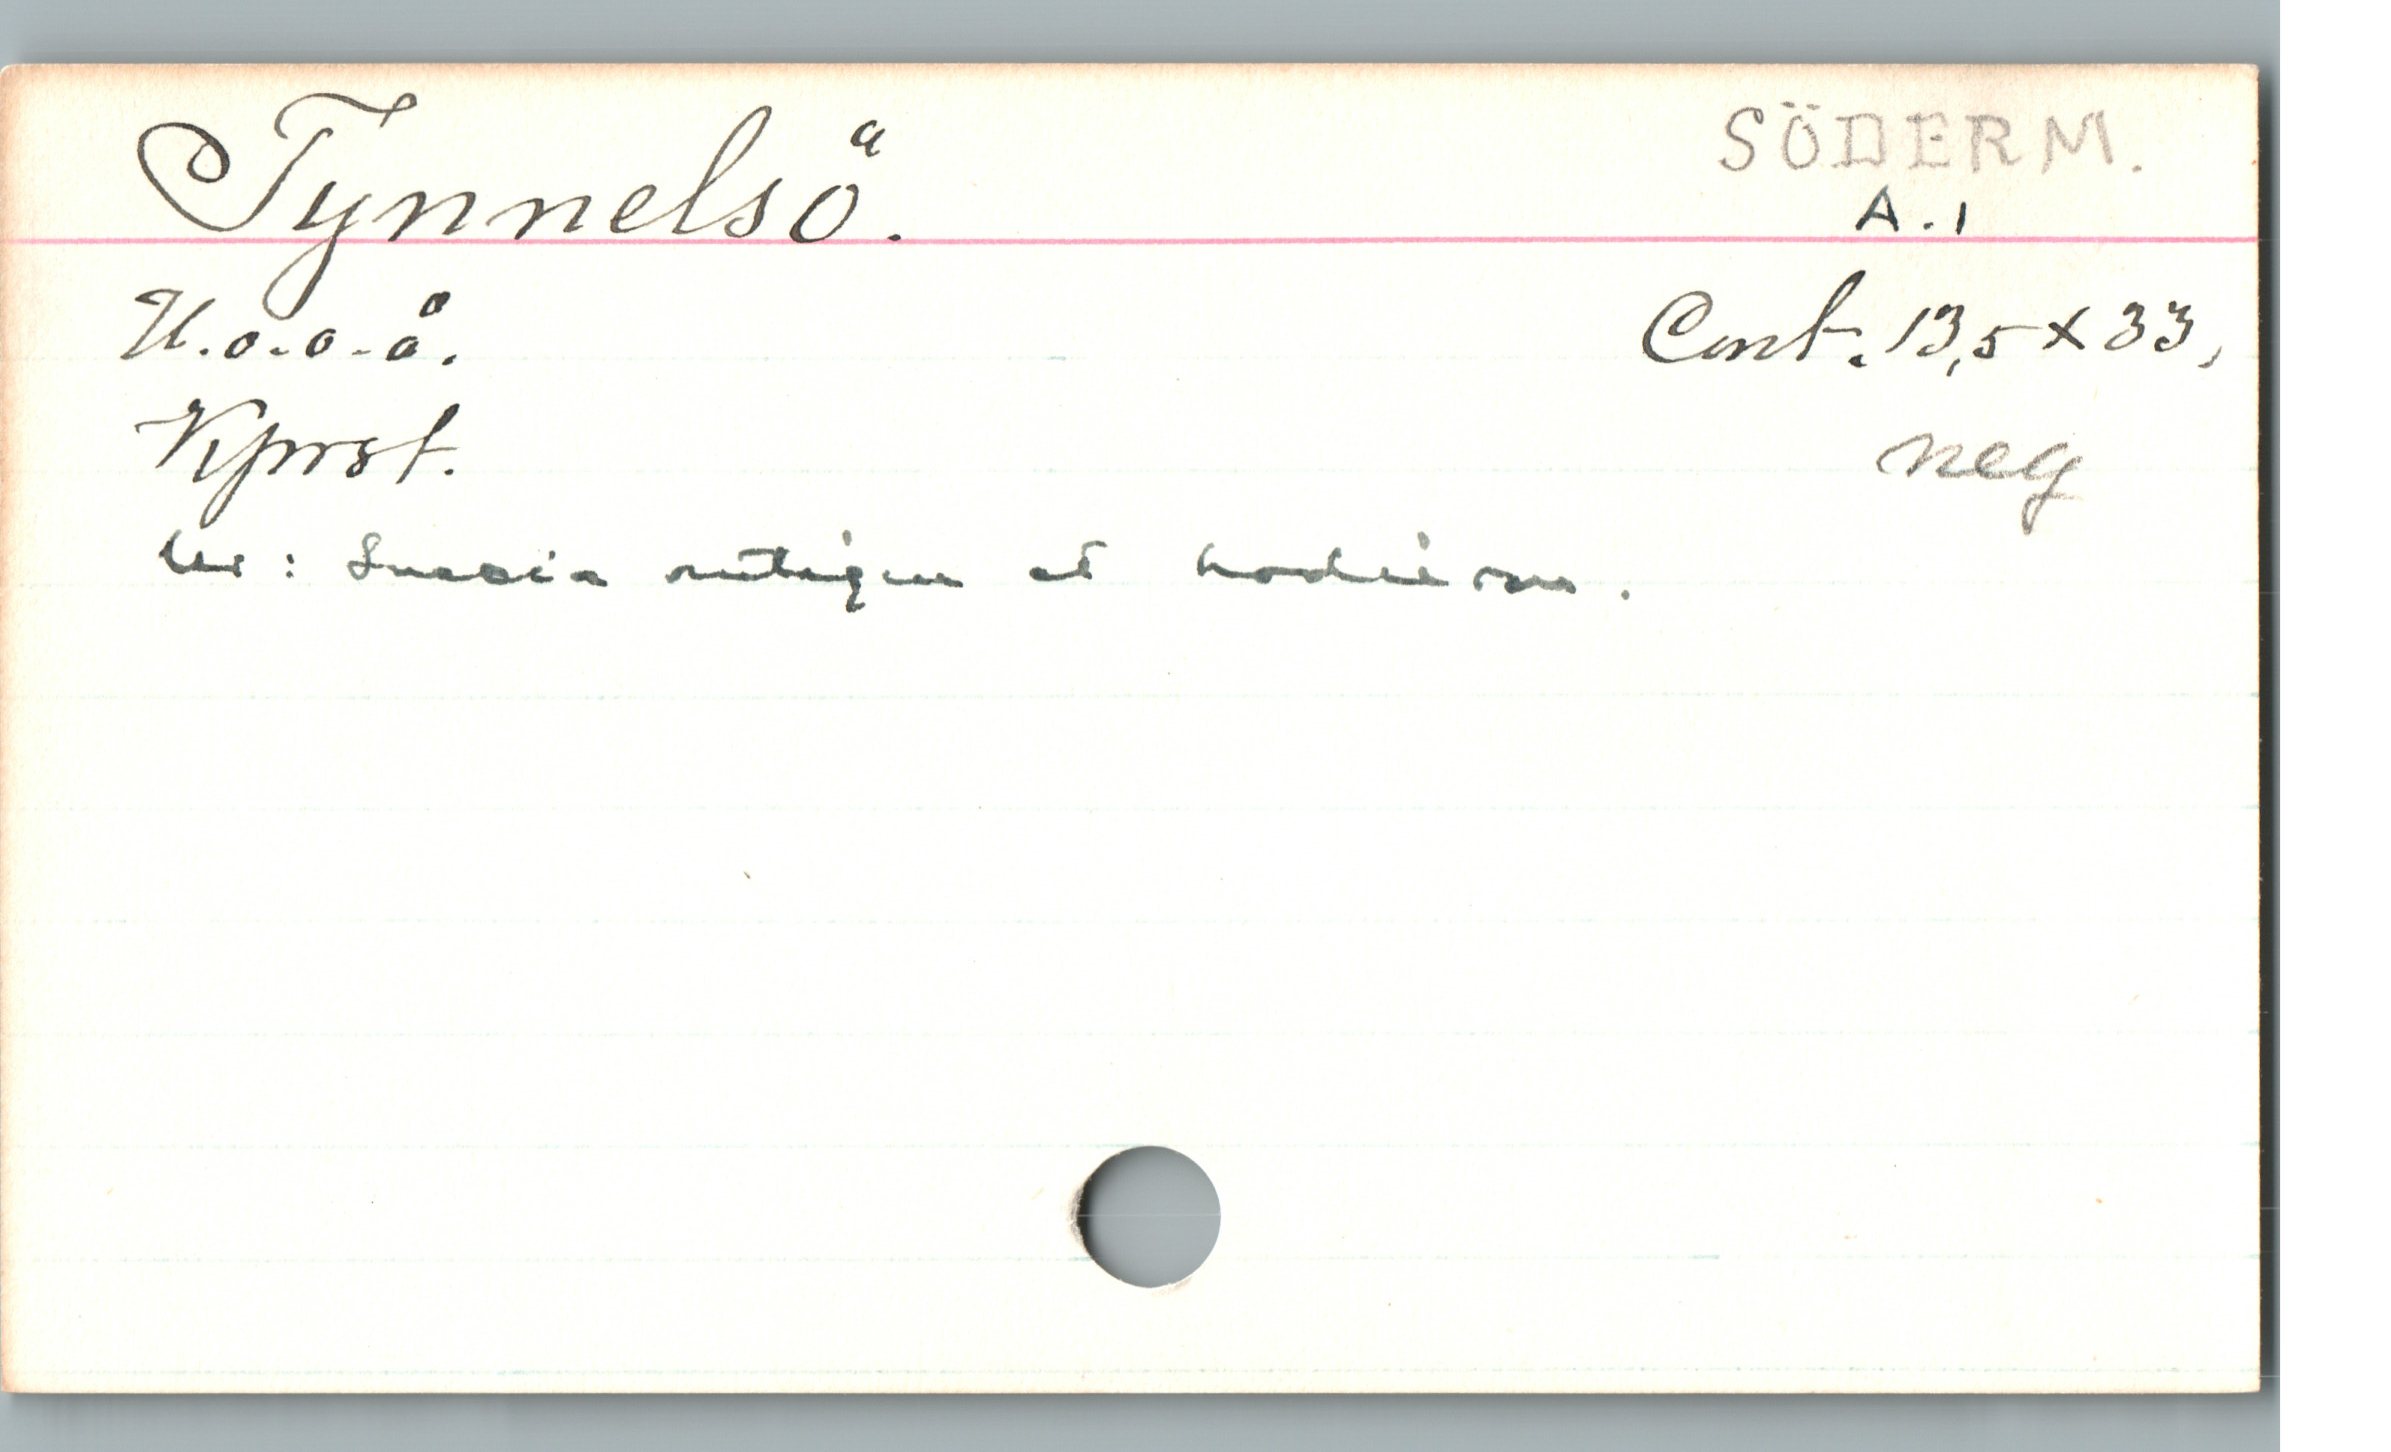 Tynnelsö.
SÖDERM.
A.1
U.o.o.å.
Cont. 13,5 x 33,
Kprst.
neg
Ur: Suecia antiqua et hodierna.